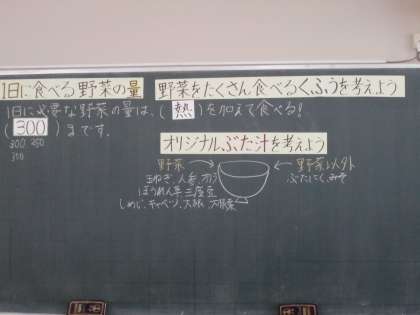 1日に食べる野菜の量
1日に必要な野菜の量は、
(300)まです。
300 350
350
野菜をたくさん食べるくふうを考えよう
(熱)を加えて食べる!
オリジナルぶた汁を考えよう
野菜
玉ねぎ、人参、
ほうれん草
しめじ、キャベツ、大根、
野菜以外
ぶたにく、みそ